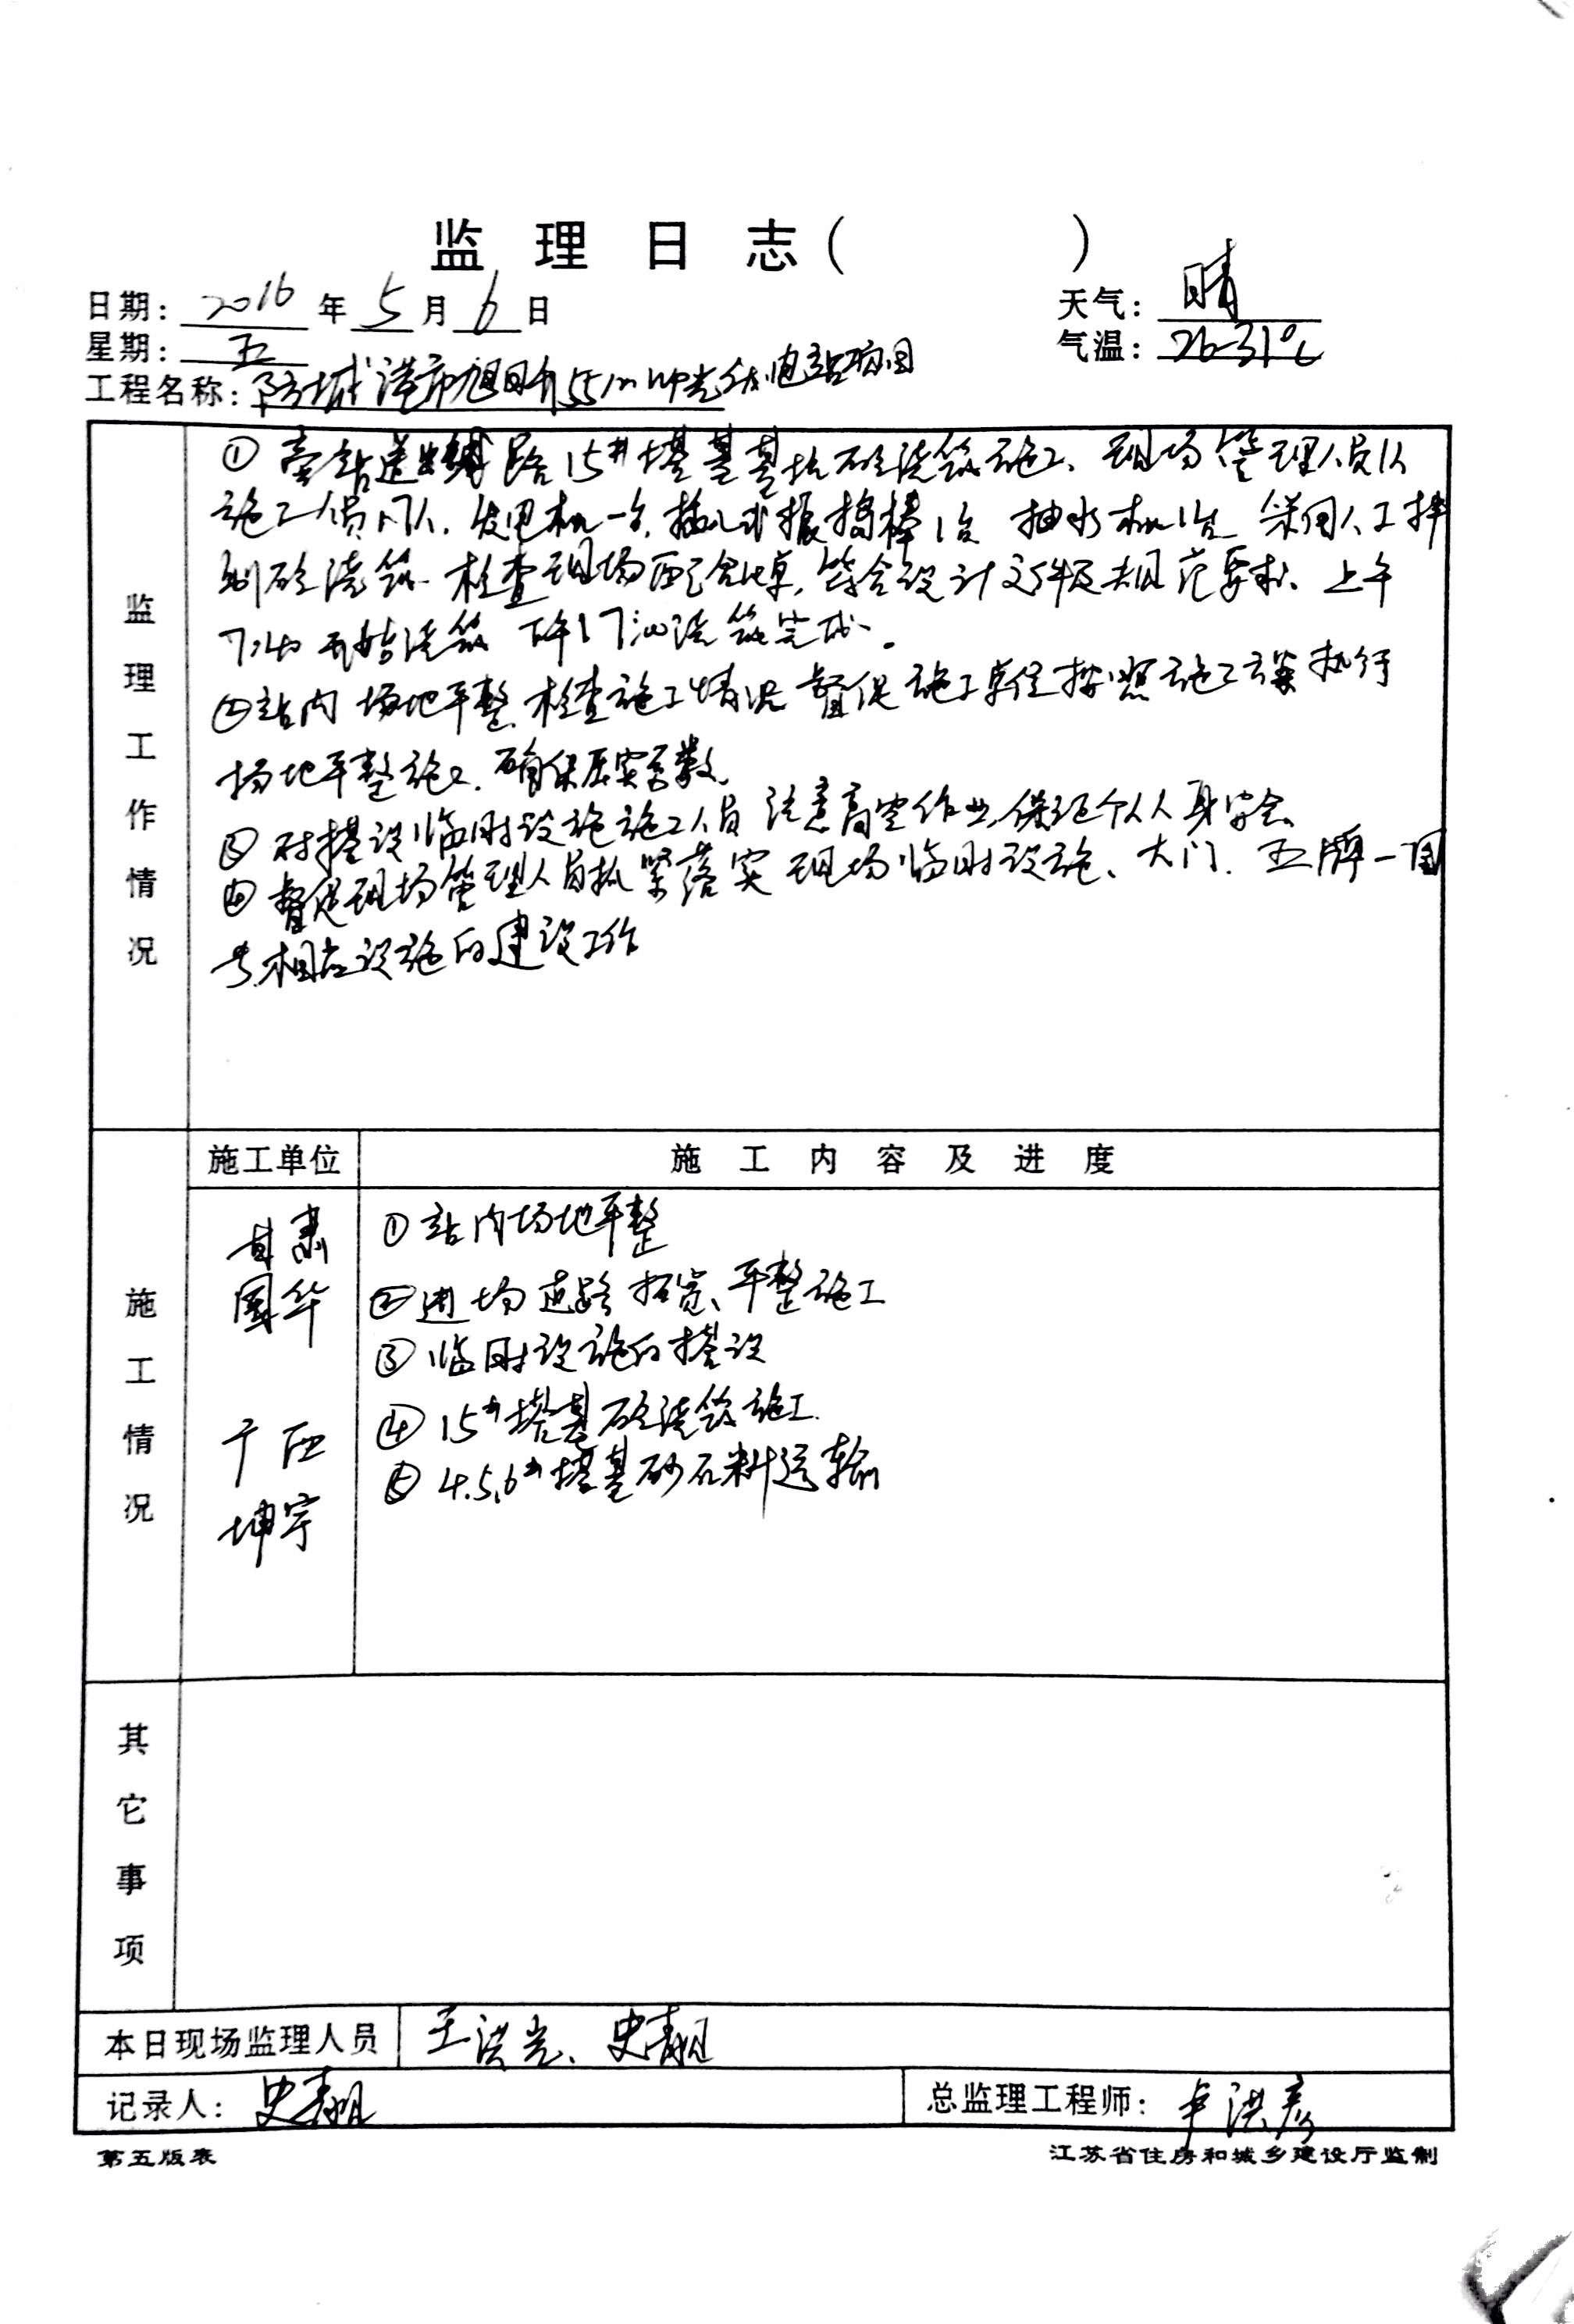 监理日志（ ）
日期：2016年5月6日 天气：晴
星期：五 气温：26-31℃
工程名称：防城港市旭日升55mwp光伏电站项目
监理工作情况
①旁站送出线路15#塔基基坑砼浇筑施工、现场管理人员1人
施工人员17人、发电机一台、插入式振捣棒1台 抽水机1台 采用人工拌
制砼浇筑 检查现场配合比单，符合设计文件及规范要求、上午
7:40开始浇筑 下午17:00浇筑完成。
②站内场地平整、检查施工情况 督促施工单位按照施工方案执行
场地平整施工、确保压实系数、
③对搭设临时设施施工人员 注意高空作业，保证个人人身安全
④督促现场管理人员抓紧落实现场临时设施、大门、五牌一图
等相应设施的建设工作
施工情况
施工单位 施工内容及进度
甘肃
国华
宁
坤宇
①站内场地平整
②进场道路拓宽、平整施工
③临时设施的搭设
④15#塔基砼浇筑施工
⑤4.5.6#塔基砂石料运输
其它事项
本日现场监理人员 王洪光、史
记录人：史 总监理工程师：卢洪彦
第五版表 江苏省住房和城乡建设厅监制